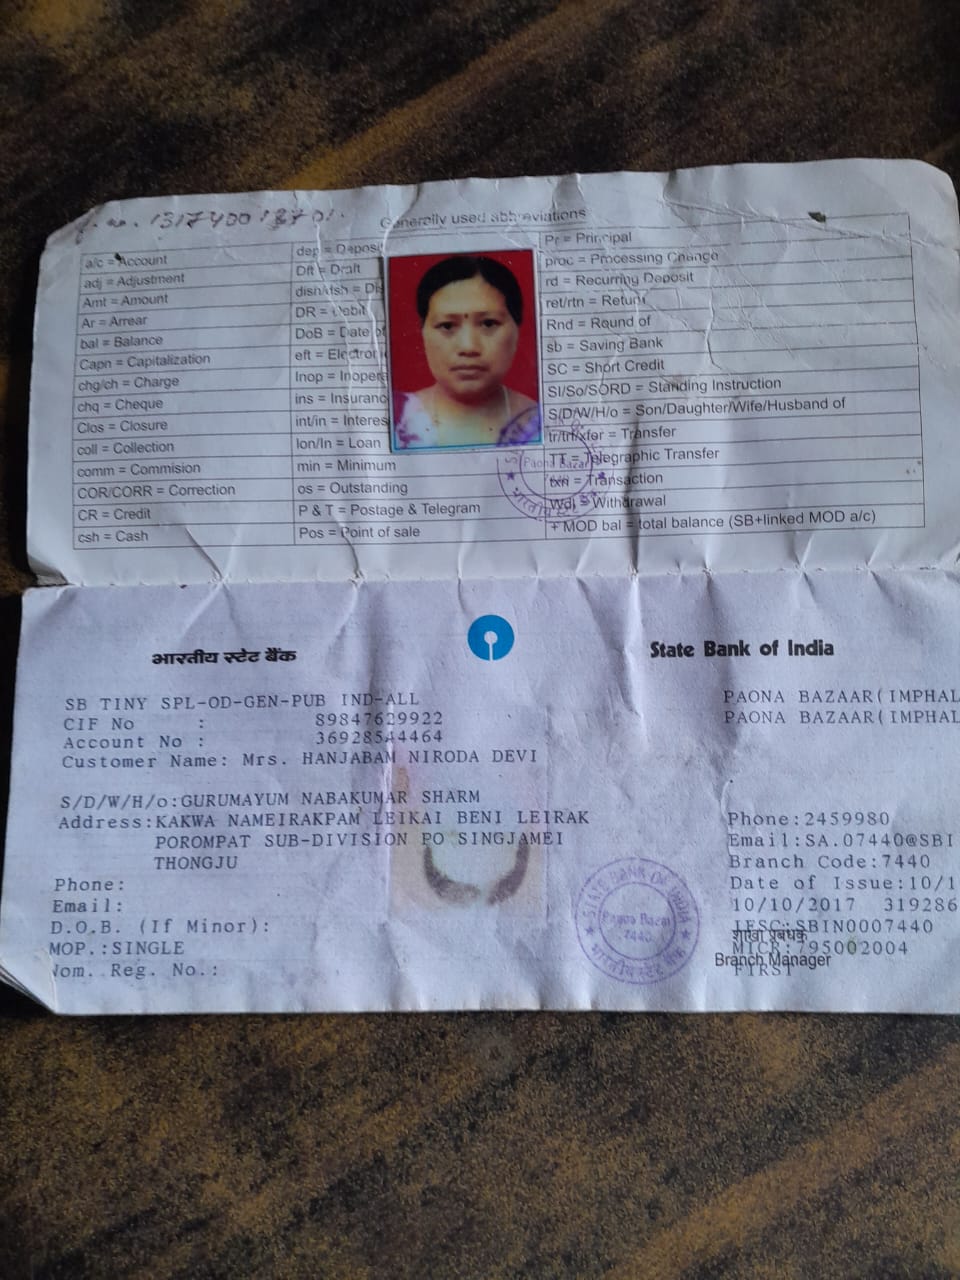 1317400
Generally used abbreviations
a/c = Account
adj = Adjustment
Amt = Amount
Ar = Arrear
bal = Balance
Capn = Capitalization
chg/ch = Charge
chq = Cheque
Clos = Closure
coll = Collection
comm = Commision
COR/CORR = Correction
CR = Credit
csh = Cash
dep = Deposi
Dft = Draft
dish/dsh = Di
DR = Debit
DoB = Date of
eft = Electron
Inop = Inopera
ins = Insuranc
int/in = Interes
lon/ln = Loan
min = Minimum
os = Outstanding
P & T = Postage & Telegram
Pos = Point of sale
Pr = Principal
proc = Processing
rd = Recurring Deposit
ret/rtn = Return
Rnd = Round of
sb = Saving Bank
SC = Short Credit
SI/So/SORD = Standing Instruction
S/D/W/H/o = Son/Daughter/Wife/Husband of
tr/trf/xfer = Transfer
TT = Telegraphic Transfer
txn = Transaction
Wdl = Withdrawal
+ MOD bal = total balance (SB+linked MOD a/c)
Paona Bazar
भारतीय स्टेट बैंक
State Bank of India
SB TINY SPL-OD-GEN-PUB IND-ALL
CIF No : 89847629922
Account No : 36928544464
Customer Name: Mrs. HANJABAM NIRODA DEVI
S/D/W/H/o:GURUMAYUM NABAKUMAR SHARM
Address:KAKWA NAMEIRAKPAM LEIKAI BENI LEIRAK
POROMPAT SUB-DIVISION PO SINGJAMEI
THONGJU
Phone:
Email:
D.O.B. (If Minor):
MOP.:SINGLE
Nom. Reg. No.:
PAONA BAZAAR(IMPHAL
PAONA BAZAAR(IMPHAL
Phone:2459980
Email:SA.07440@SBI
Branch Code:7440
Date of Issue:10/1
10/10/2017 319286
IFSC:SBIN0007440
शाखा प्रबंधक
MICR:795002004
Branch Manager
FIRST
STATE BANK OF INDIA
Paona Bazar
7440
भारतीय स्टेट बैंक